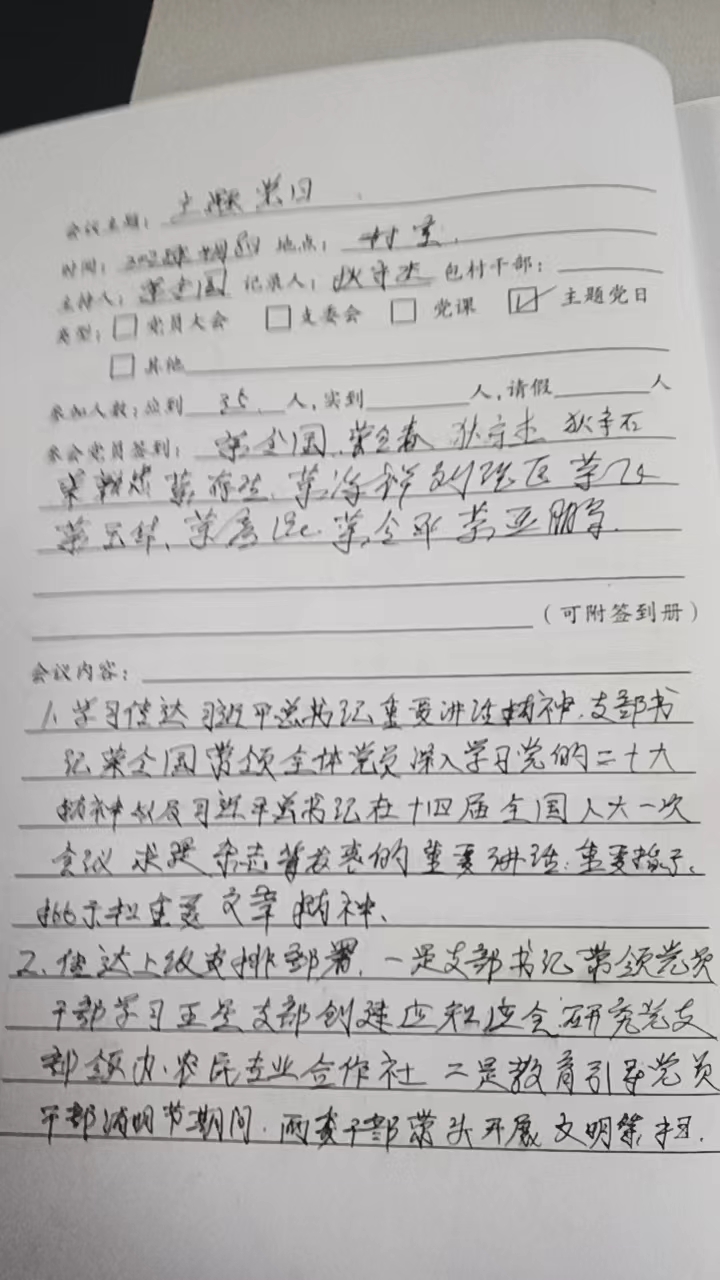 会议主题：主题党日
时间：2023年4月8日 地点：村室
主持人：荣全国 记录人：狄守杰 包村干部：
类型：□党员大会 □支委会 □党课 ☑主题党日
□其他
参加人数：应到 35 人，实到 人，请假 人
参会党员签到：荣全国 荣全春 狄守杰 狄辛石
（可附签到册）
会议内容：
1、学习传达习近平总书记重要讲话精神，支部书
记荣全国带领全体党员深入学习党的二十大
精神以及习近平总书记在十四届全国人大一次
会议 求是杂志 发表的重要讲话、重要指示、
批示和重要文章精神、
2、传达上级安排部署，一是支部书记带领党员
干部学习五星支部创建应知应会，研究党支
部领办、农民专业合作社 二是教育引导党员
干部清明节期间，两委干部带头开展文明祭扫，